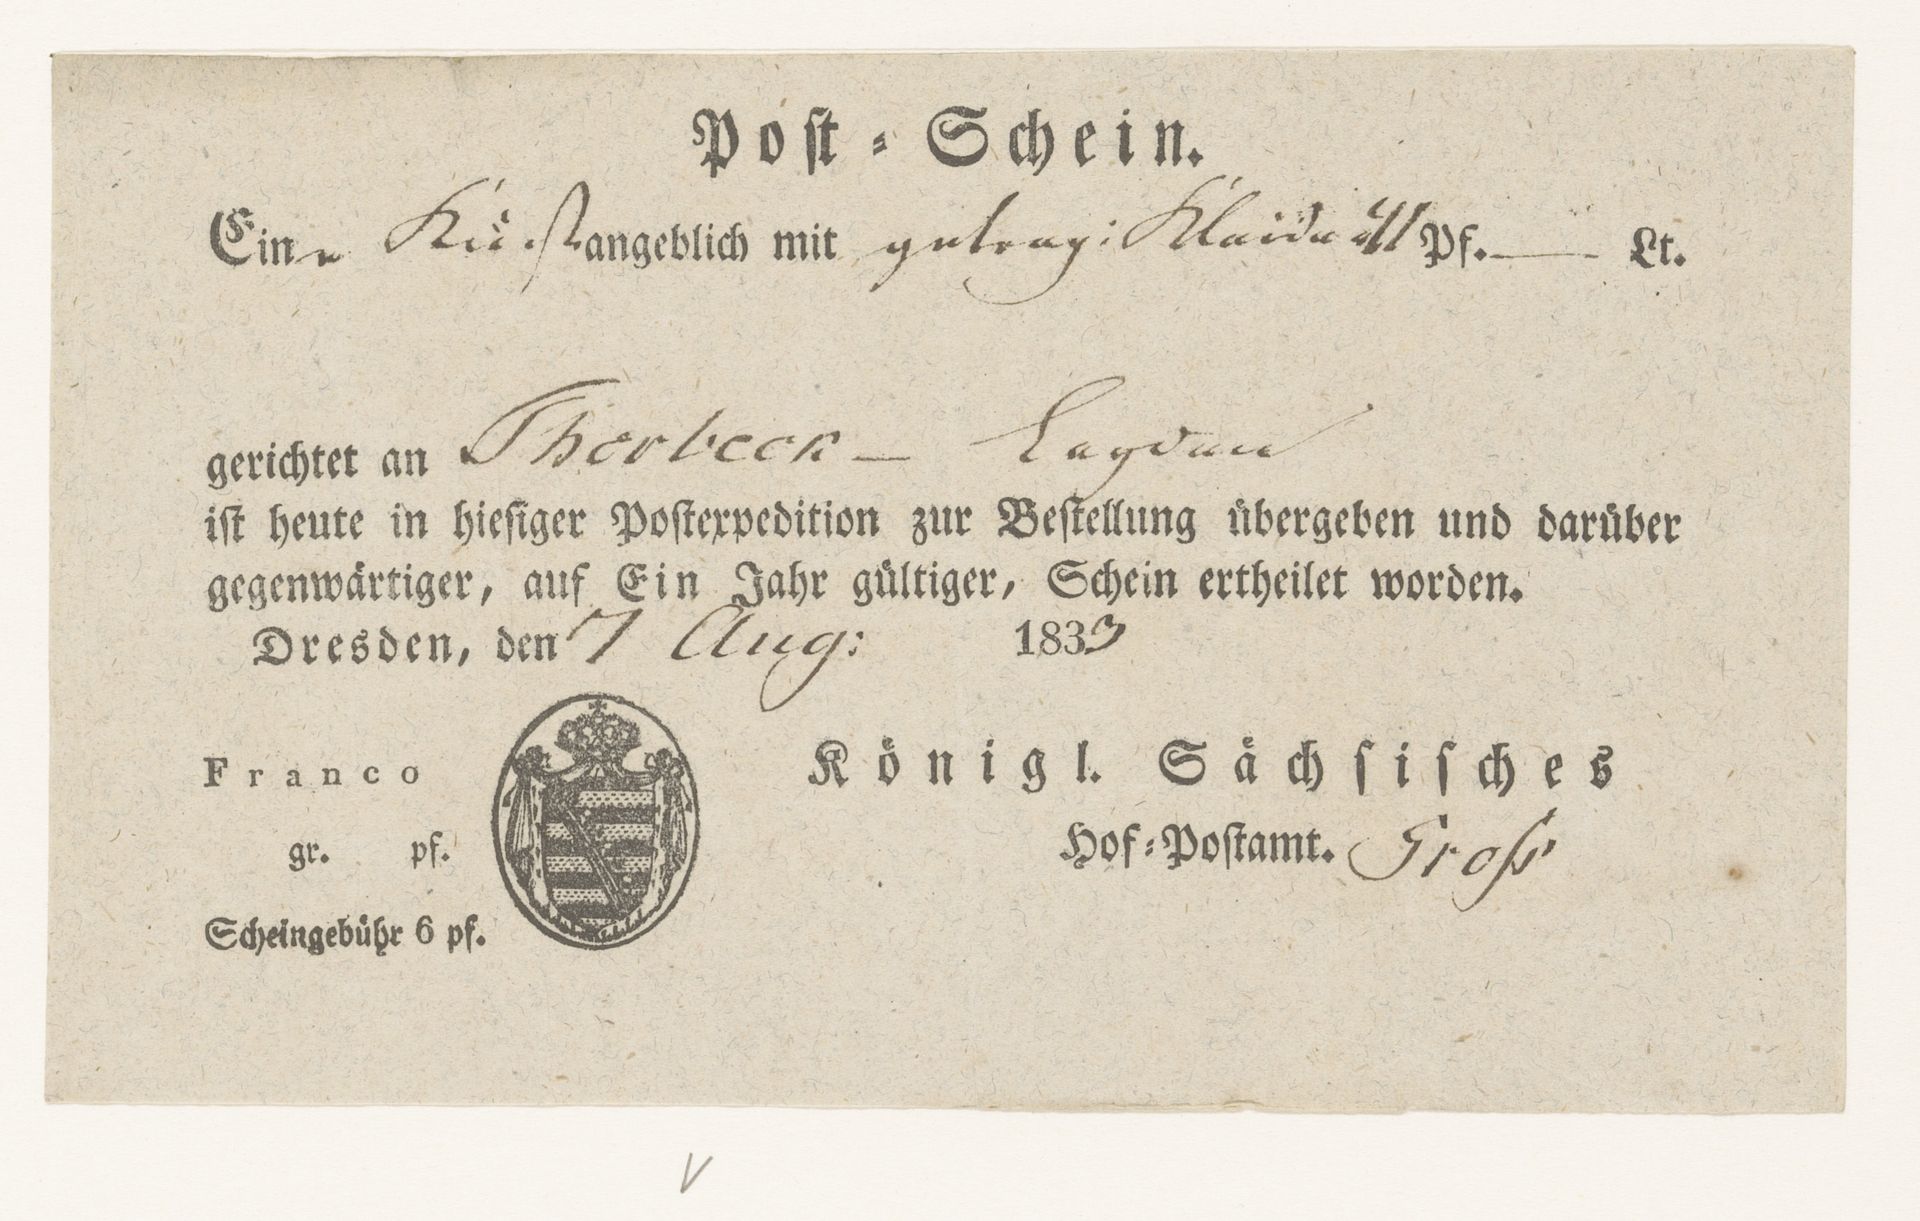 Post-Schein.
Eine Kiste angeblich mit getrag: Kleider 41 Pf. — Lt.
gerichtet an Thorbeck — Leyden
ist heute in hiesiger Postexpedition zur Bestellung übergeben und darüber
gegenwärtiger, auf Ein Jahr gültiger, Schein ertheilet worden.
Dresden, den 7 Aug: 1833
Franco
Königl. Sächsisches
gr. pf.
Hof-Postamt. Groß
Scheingebühr 6 pf.
V